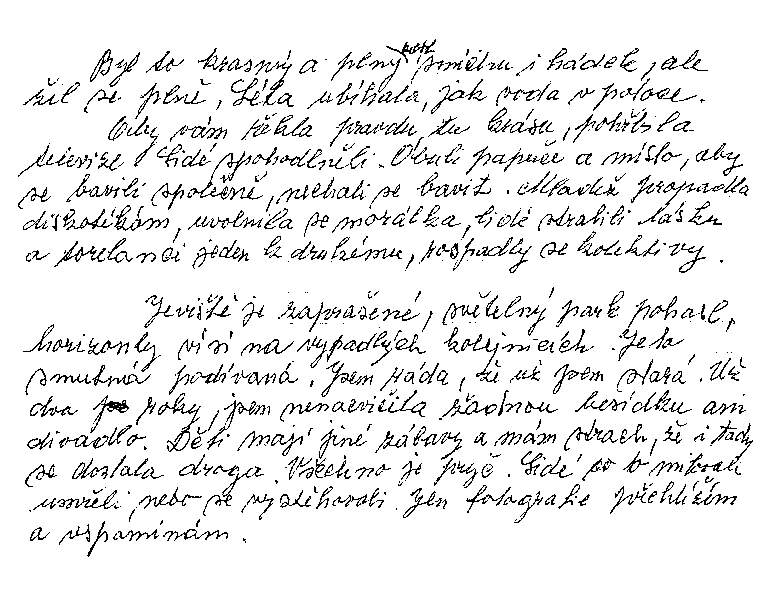 Byl to krasný a plný pocit smíchu i hádek, ale
žil se plně, Léta ubíhala, jak voda v potoce.
Aby vám řekla pravdu, tu krásu, pohřbila
televize. Lidé spohodlněli. Obuli papuče a místo, aby
se bavili společně, nechali se bavit. Mládež propadla
diskotékám, uvolnila se morálka, lidé ztratili lásku
a toreland jeden k druhému, rospadly se kolektivy.
Jeviště je zaprašené, světelný park pohasl,
horizonty visí na vypadlých kolejnicích. Je to
smutná podívaná. Jsem ráda, že už jsem stará. Už
dva roky, jsem nenacvičila žádnou besídku ani
divadlo. Děti mají jiné zábavy a mám strach, že i tady
se dostala droga. Všechno je pryč. Lidé co to milovali
umřeli nebo se vystěhovali. Jen fotografie přehlížím
a vspomínám.